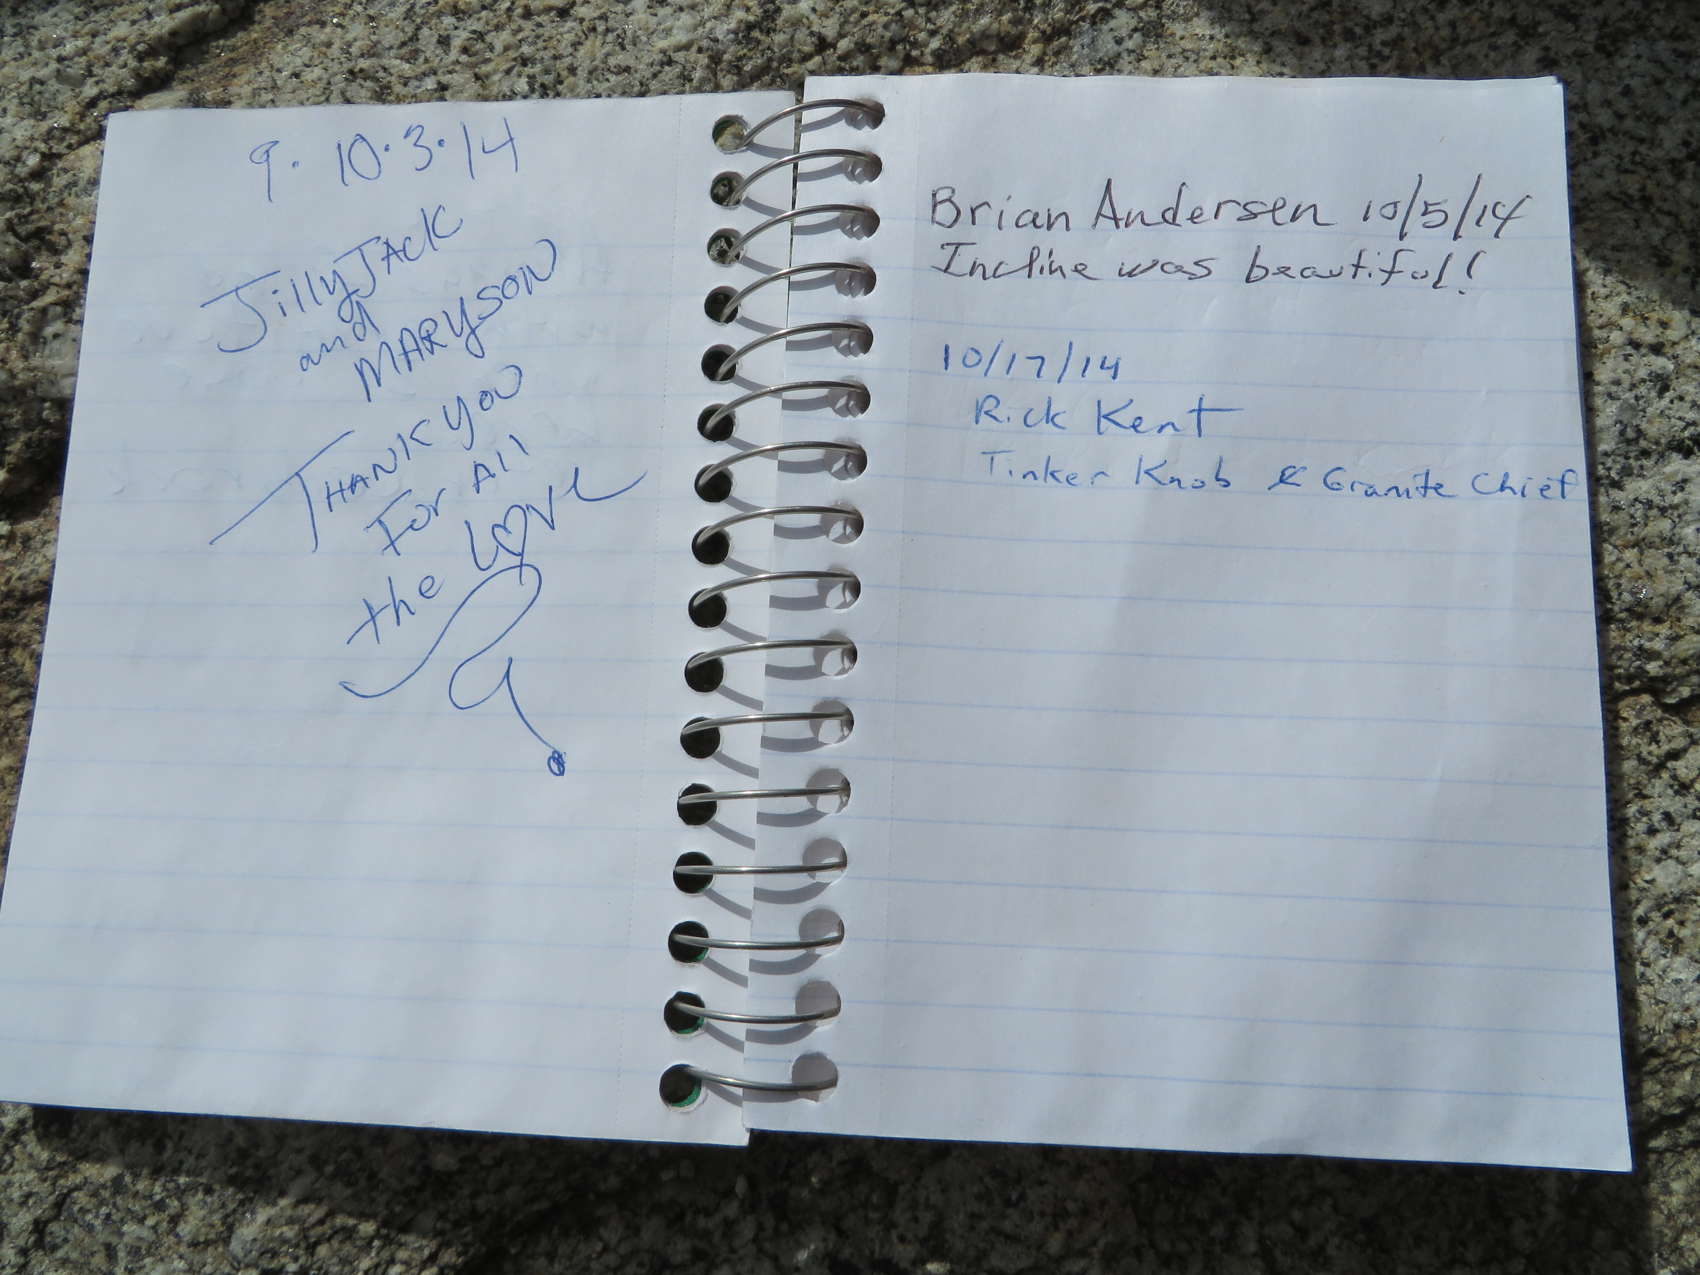 9. 10.3.14
JillyJAcK
and
MARYSON
THANK YOU
For All
the Love
Brian Andersen 10/5/14
Incline was beautiful!
10/17/14
Rick Kent
Tinker Knob & Granite Chief